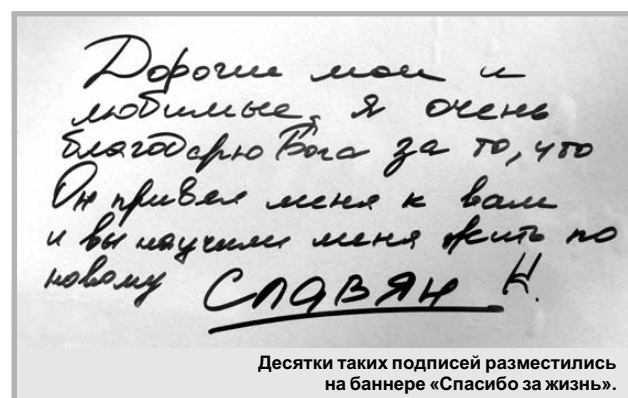 Дорогие мои и
любимые, я очень
благодарю Бога за то, что
Он привел меня к вам
и вы научили меня жить по
новому СЛАВЯН К.
Десятки таких подписей разместились
на баннере «Спасибо за жизнь».